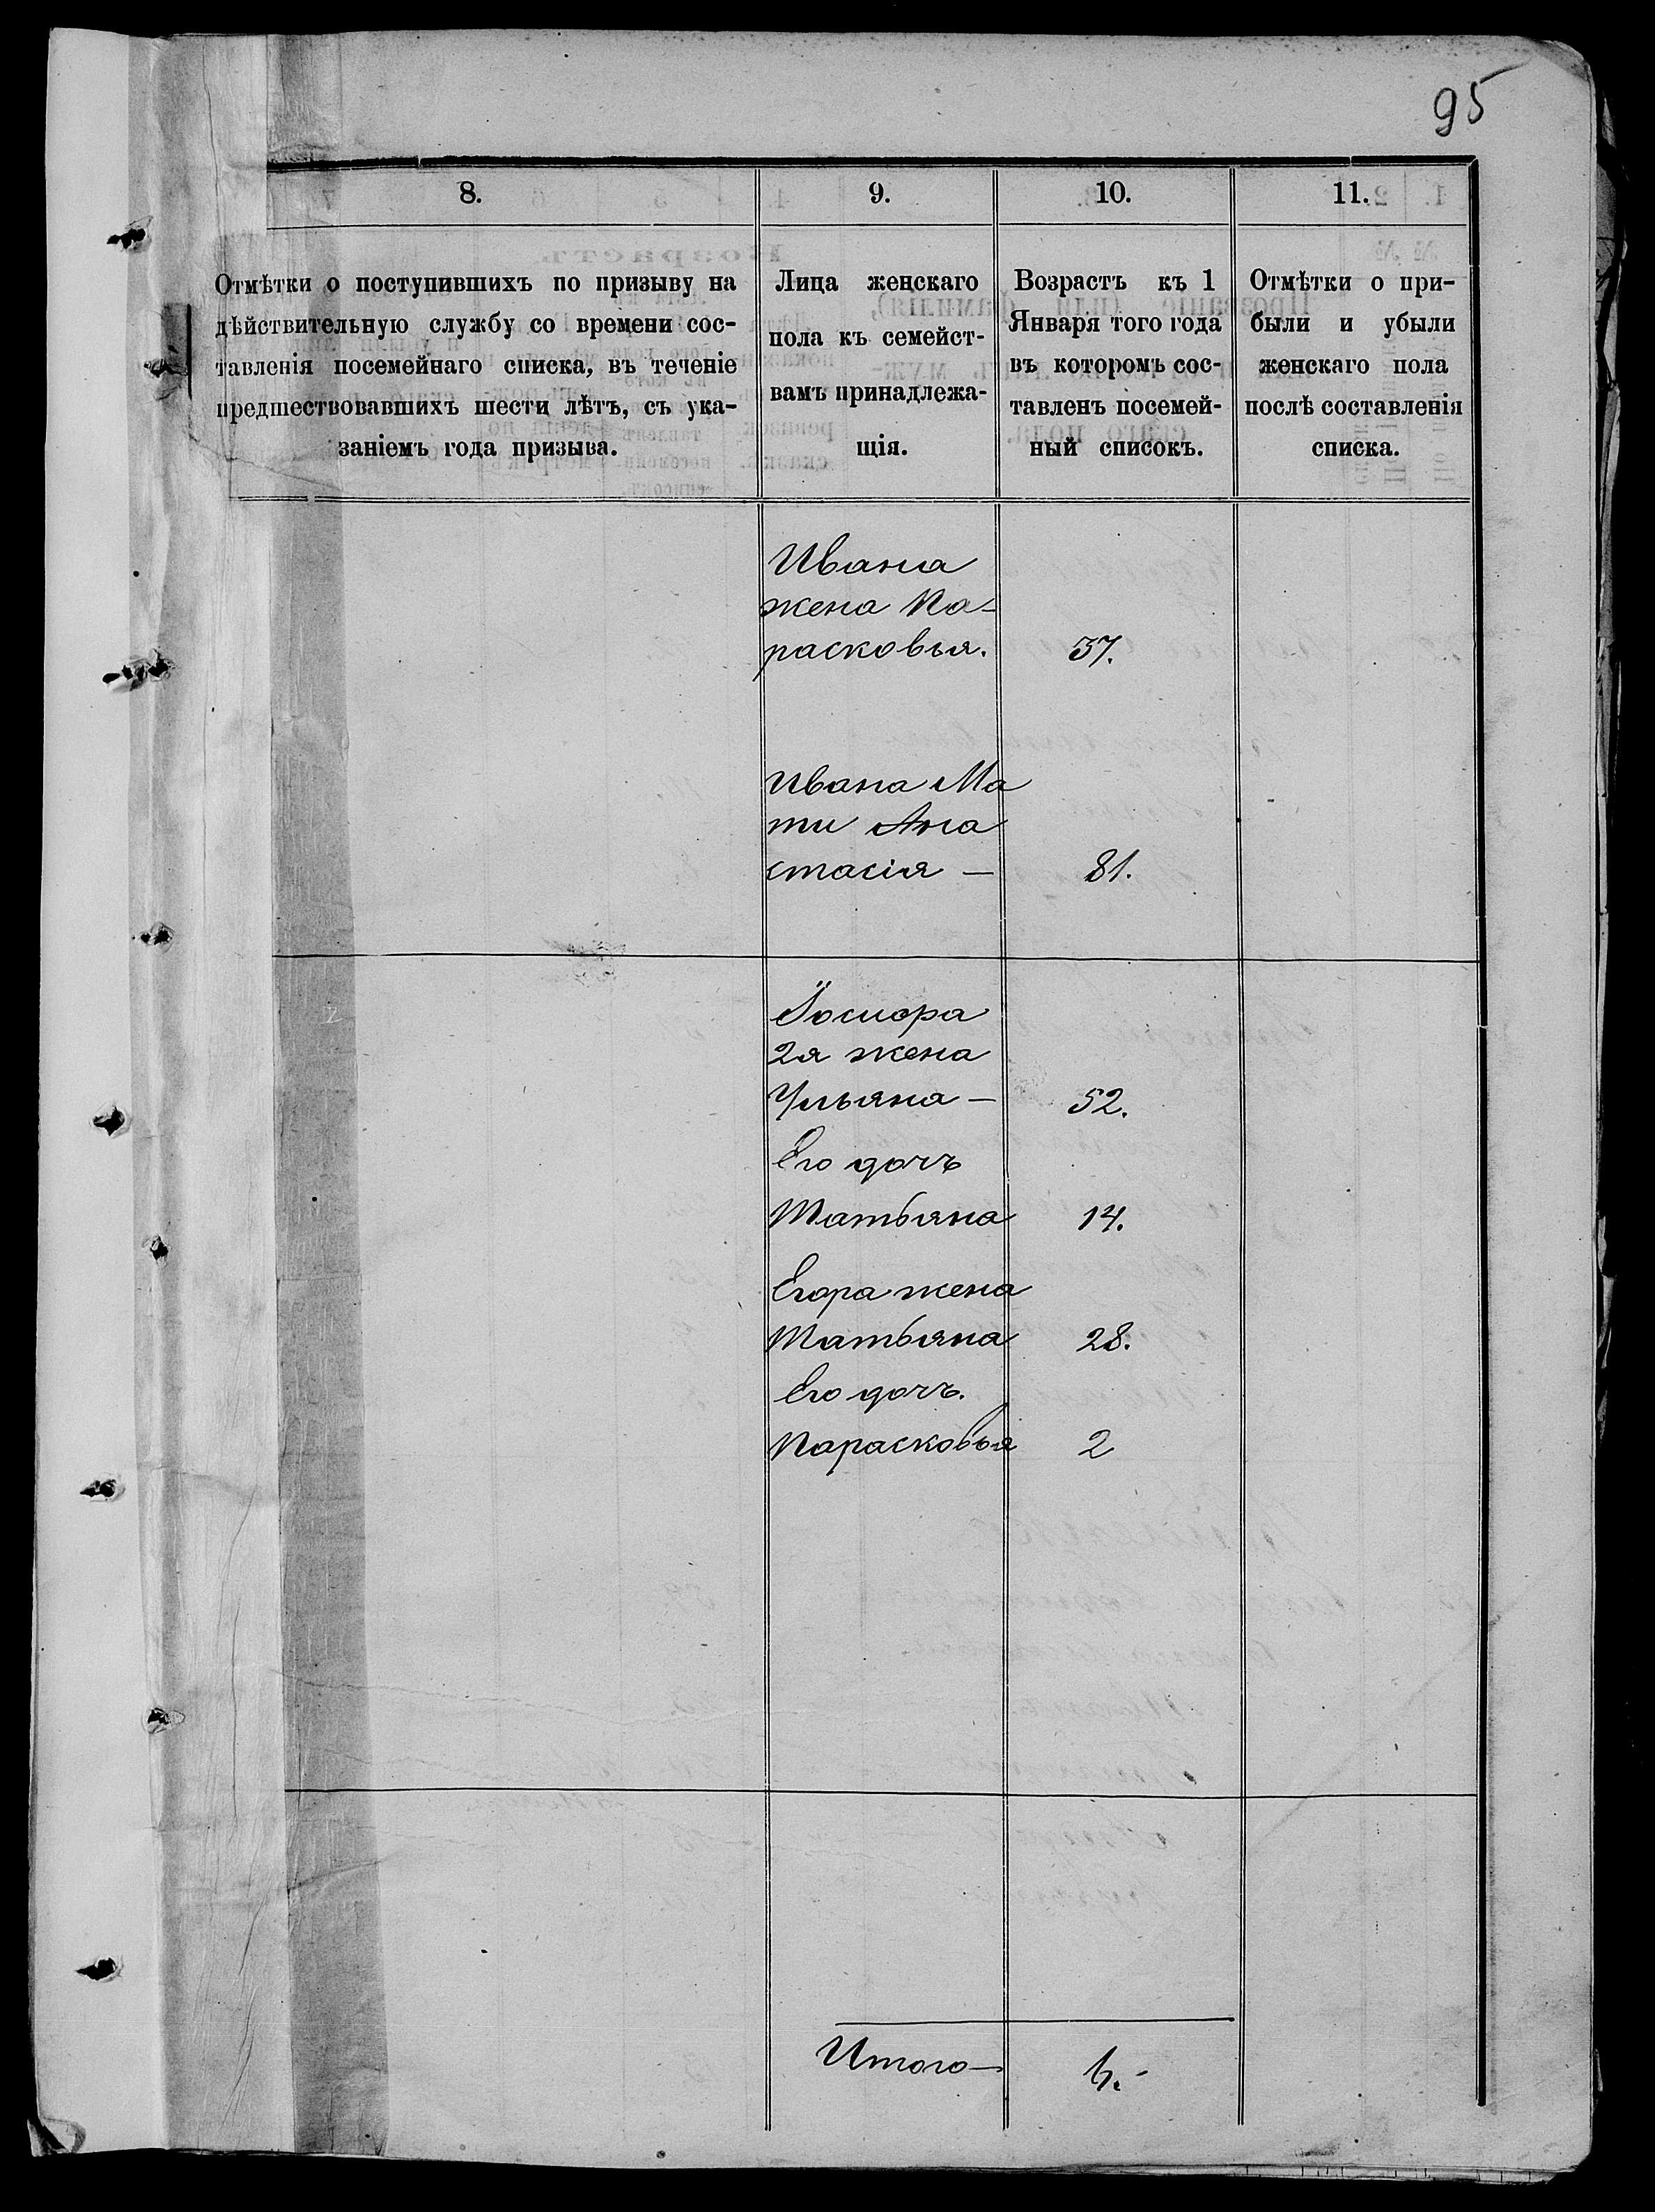 95
8.
9.
10.
11.
Отмѣтки о поступившихъ по призыву на
дѣйствительную службу со времени сос-
тавленія посемейнаго списка, въ теченіе
предшествовавшихъ шести лѣтъ, съ ука-
заніемъ года призыва.
Лица женскаго
пола къ семейст-
вамъ принадлежа-
щія.
Возрастъ къ 1
Января того года
въ которомъ сос-
тавленъ посемей-
ный списокъ.
Отмѣтки о при-
были и убыли
женскаго пола
послѣ составленія
списка.
Ивана
жена Па-
расковья. 37.
Ивана Ма
ти Ана
стасія — 81.
2я жена
Ульяна — 52.
Его дочь
Татьяна 14.
Егора жена
Татьяна 28.
Его дочь.
Парасковья 2
Итого —